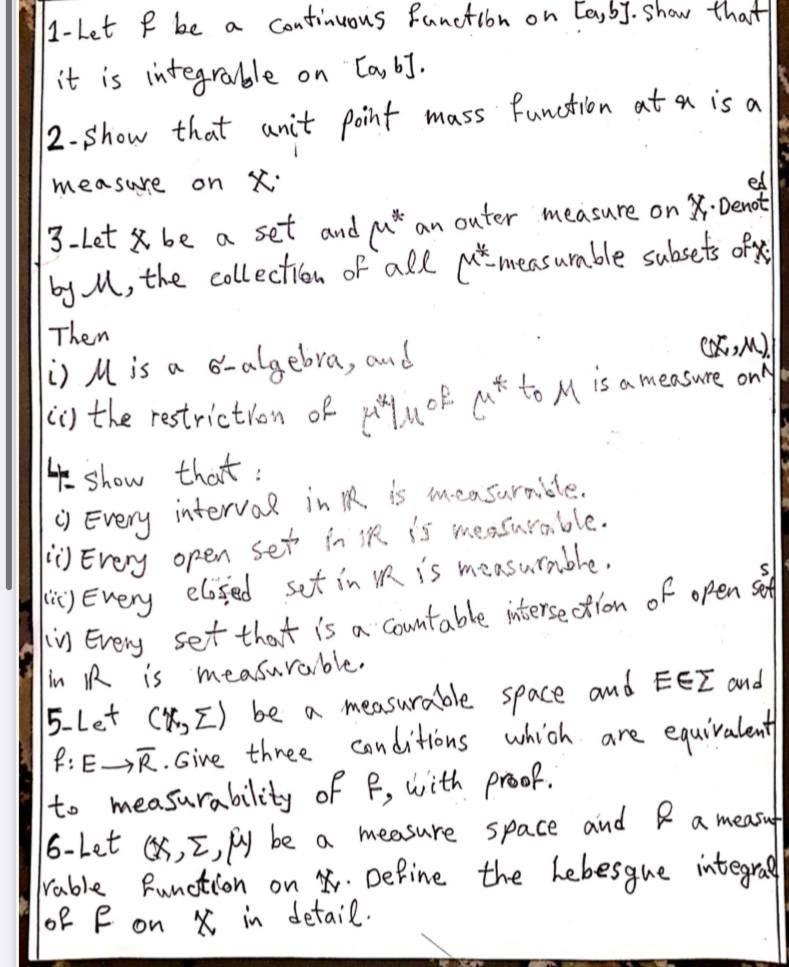 1-Let f be a continuous function on [a,b]. Show that
it is integrable on [a,b].
2-Show that unit point mass function at x is a
measure on X.
3-Let X be a set and μ* an outer measure on X. Denoted
by M, the collection of all μ*-measurable subsets of X;
Then
i) M is a σ-algebra, and
ii) the restriction of μ*|M of μ* to M is a measure on (X,M).
4- Show that :
i) Every interval in ℝ is measurable.
ii) Every open set in ℝ is measurable.
iii) Every closed set in ℝ is measurable.
iv) Every set that is a countable intersection of open sets
in ℝ is measurable.
5-Let (X,Σ) be a measurable space and E∈Σ and
f:E→ℝ̄. Give three conditions which are equivalent
to measurability of f, with proof.
6-Let (X,Σ,μ) be a measure space and f a measu
rable function on X. Define the Lebesgue integral
of f on X in detail.